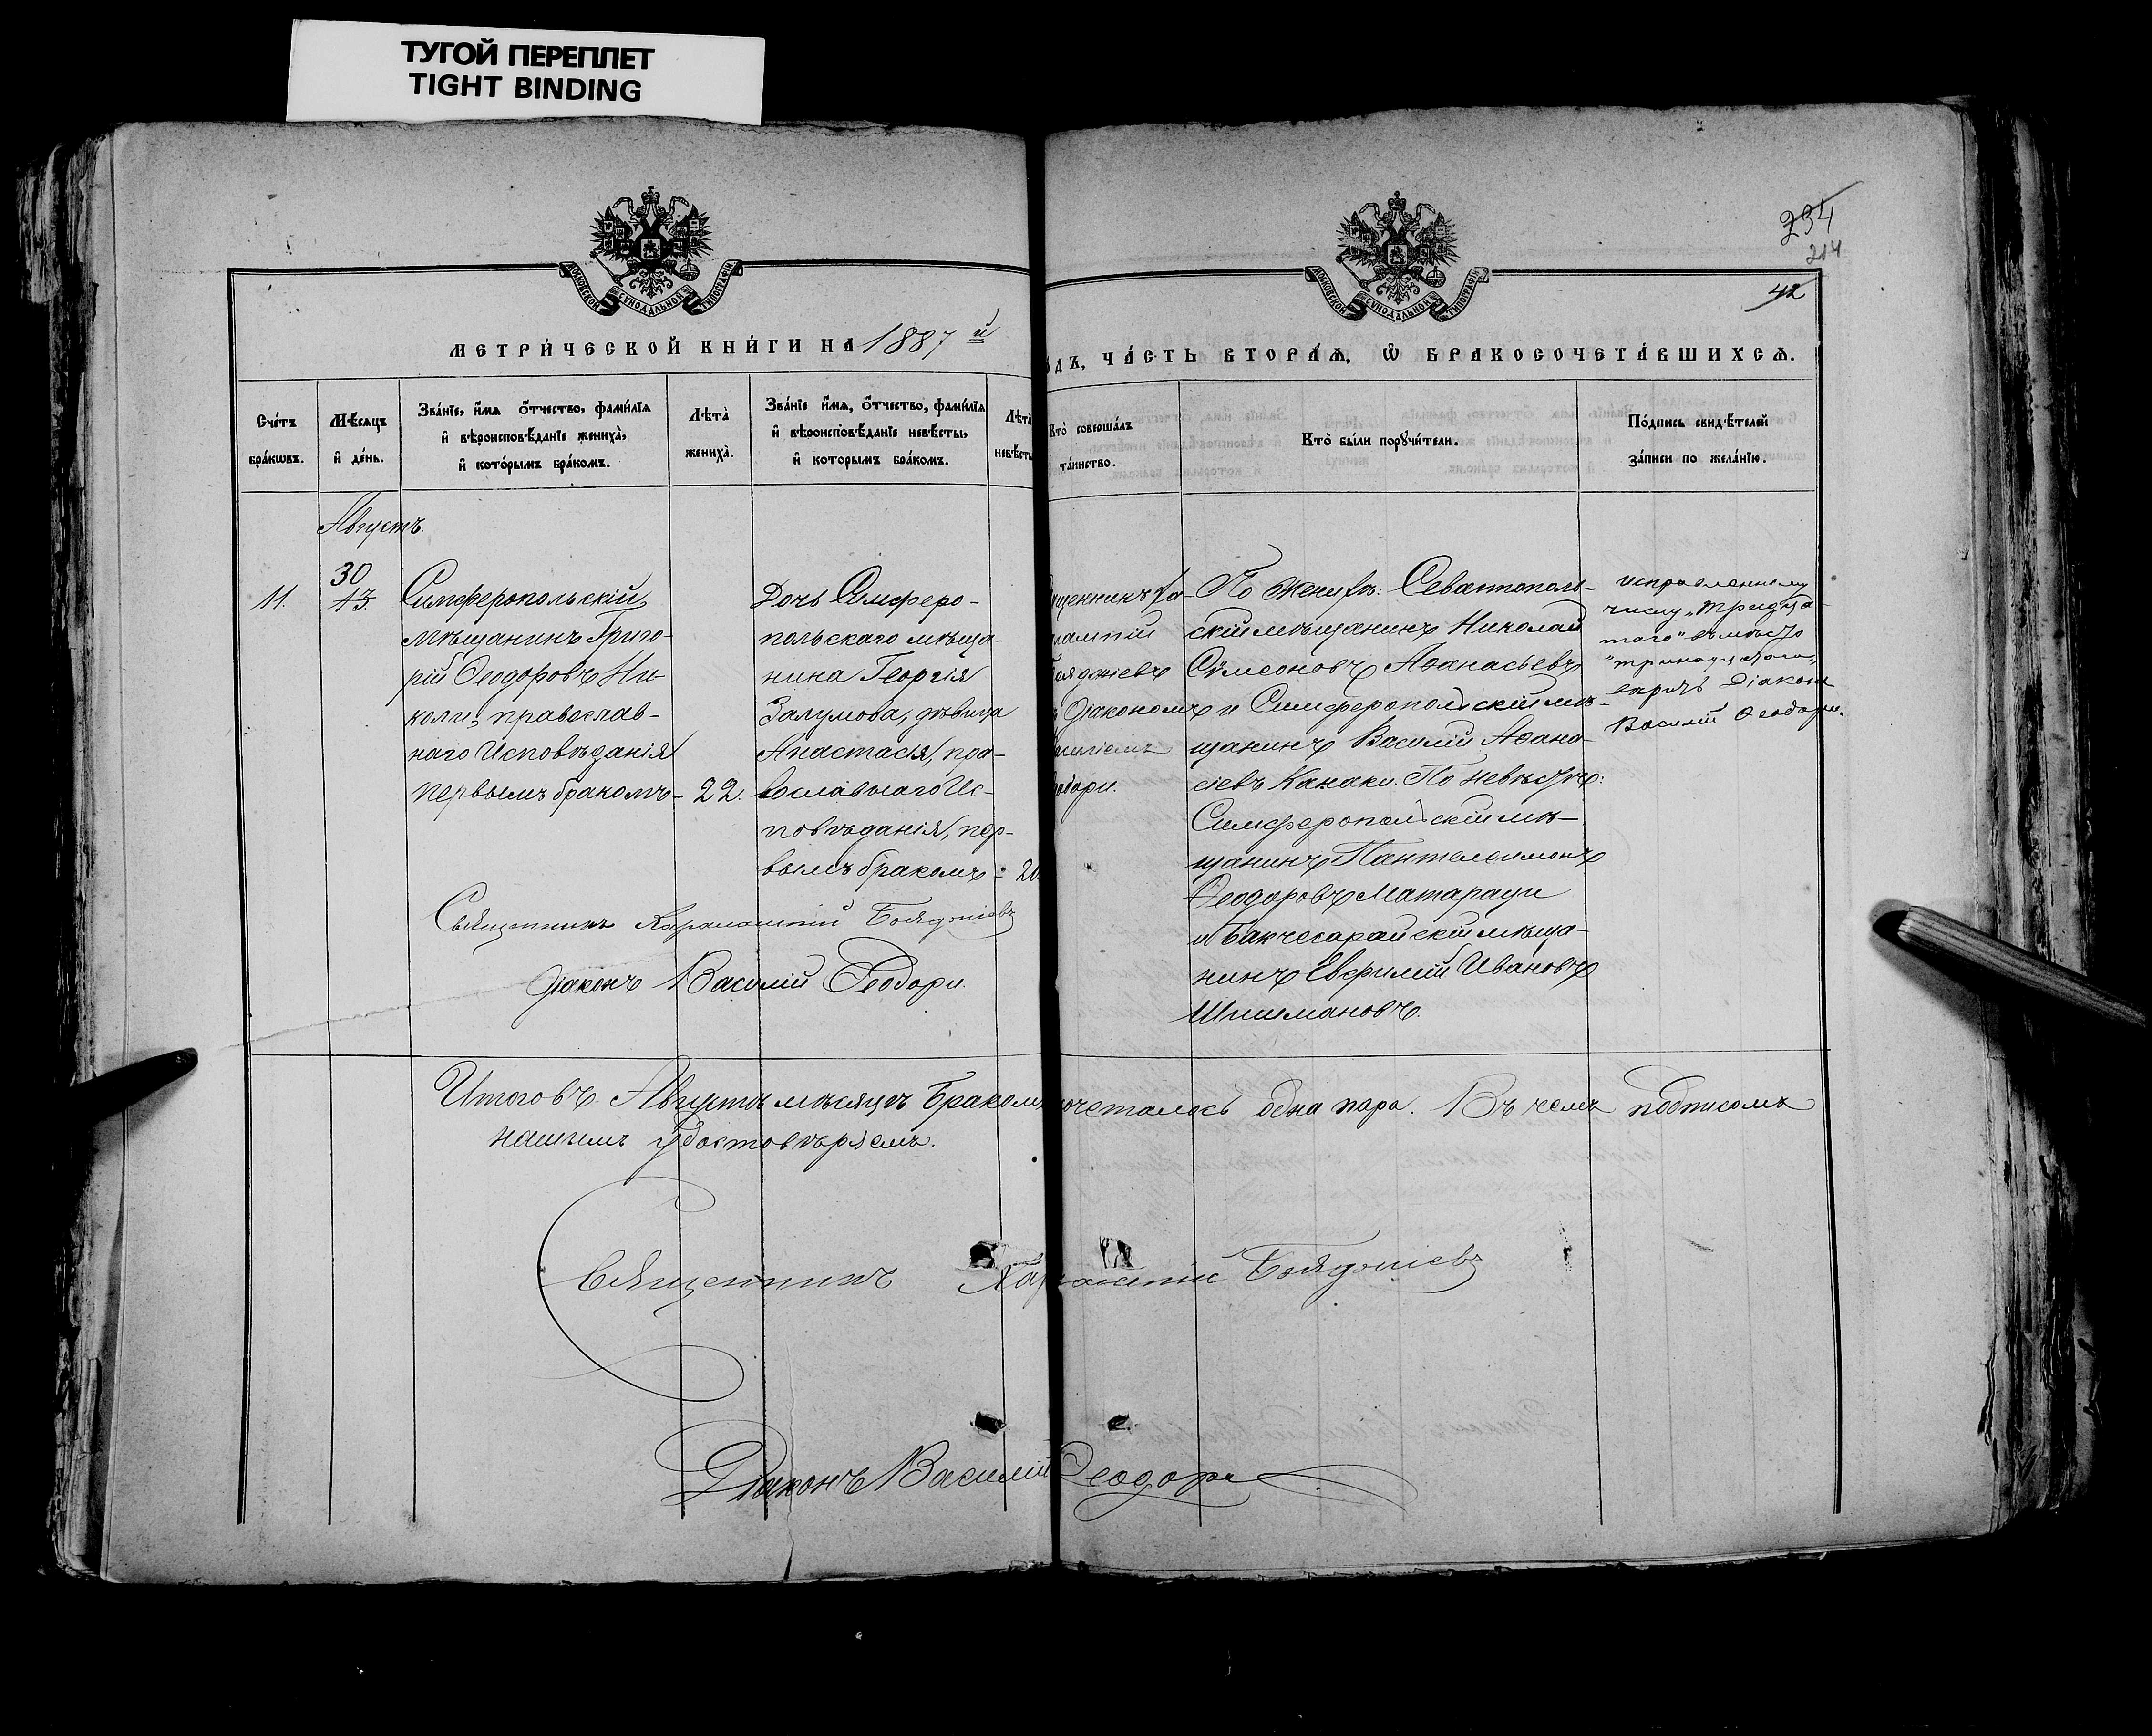 ТУГОЙ ПЕРЕПЛЕТ
TIGHT BINDING
234
214
42
МОСКОВСКОЙ СѴНОДАЛЬНОЙ ТИПОГРАФІИ
МОСКОВСКОЙ СѴНОДАЛЬНОЙ ТИПОГРАФІИ
МЕТРИ́ЧЕСКОЙ КНИ́ГИ НА 1887 й
о́дъ, ЧА́СТЬ ВТОРА́Ѧ, Ѡ҆ БРАКОСОЧЕТА́ВШИХСѦ.
Сче́тъ
бра́кѡвъ.
Мѣ́сѧцъ
и҆ де́нь.
Зва́нїе, и҆́мѧ о҆́тчество, фами́лїѧ
и҆ вѣроисповѣ́данїе жениха̀,
и҆ кото́рымъ бра́комъ.
Лѣ́та̀
жениха̀.
Зва́нїе и҆́мѧ, о҆́тчество, фами́лїѧ
и҆ вѣроисповѣ́данїе невѣ́сты,
и҆ которымъ бра́комъ.
Лѣ́та̀
невѣ́сты
Кто̀ соверша́лъ
та́инство.
Кто̀ бы́ли порꙋчи́тели.
По́дпись свидѣ́телей
за́писи по жела́нїю.
Августъ
11.
30
13
Симферопольскій
мѣщанинъ Григо-
рій Ѳеодоровъ Ни-
коли, православ-
наго Исповѣданія
первымъ бракомъ
22.
Дочь Симферо-
польскаго мѣща-
нина Георгія
Залумова, дѣвица
Анастасія, пра-
вославнаго Ис-
повѣданія, пер-
вымъ бракомъ
20
щенникъ Ха-
лампій
ояджіевъ
Діакономъ
силіемъ
одори.
По женихѣ: Севастополь-
скій мѣщанинъ Николай
Сѵмеоновъ Аѳанасьевъ
и Симферопольскій мѣ-
щанинъ Василій Аѳана-
сіевъ Канаки. По невѣстѣ:
Симферопольскій мѣ-
щанинъ Пантелеимонъ
Ѳеодоровъ Матараци
и Бакчесарайскій мѣща-
нинъ Евфимій Ивановъ
Шишмановъ.
исправленному
числу „тридца-
таго" вмѣсто
"тринадцатаго„
вѣрять Діаконъ
Василій Ѳеодори.
Священникъ Харалампій Бояджіевъ
Діаконъ Василій Ѳеодори.
Итого въ Августѣ мѣсяцѣ бракомъ сочеталась одна пара. Въ чемъ подписомъ
нашимъ удостовѣряемъ.
Священникъ Харалампій Бояджіевъ
Діаконъ Василій Ѳеодори